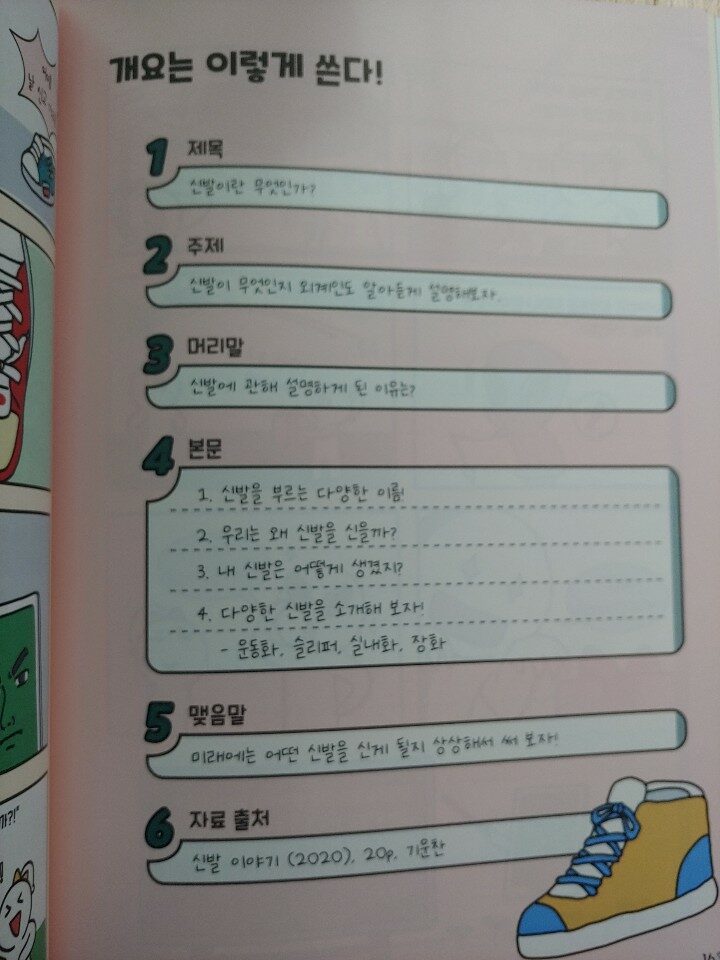 개요는 이렇게 쓴다!
1 제목
신발이란 무엇인가?
2 주제
신발이 무엇인지 외계인도 알아듣게 설명해보자.
3 머리말
신발에 관해 설명하게 된 이유는?
4 본문
1. 신발을 부르는 다양한 이름!
2. 우리는 왜 신발을 신을까?
3. 내 신발은 어떻게 생겼지?
4. 다양한 신발을 소개해 보자!
- 운동화, 슬리퍼, 실내화, 장화
5 맺음말
미래에는 어떤 신발을 신게 될지 상상해서 써 보자!
6 자료 출처
신발 이야기 (2020), 20p, 기운찬